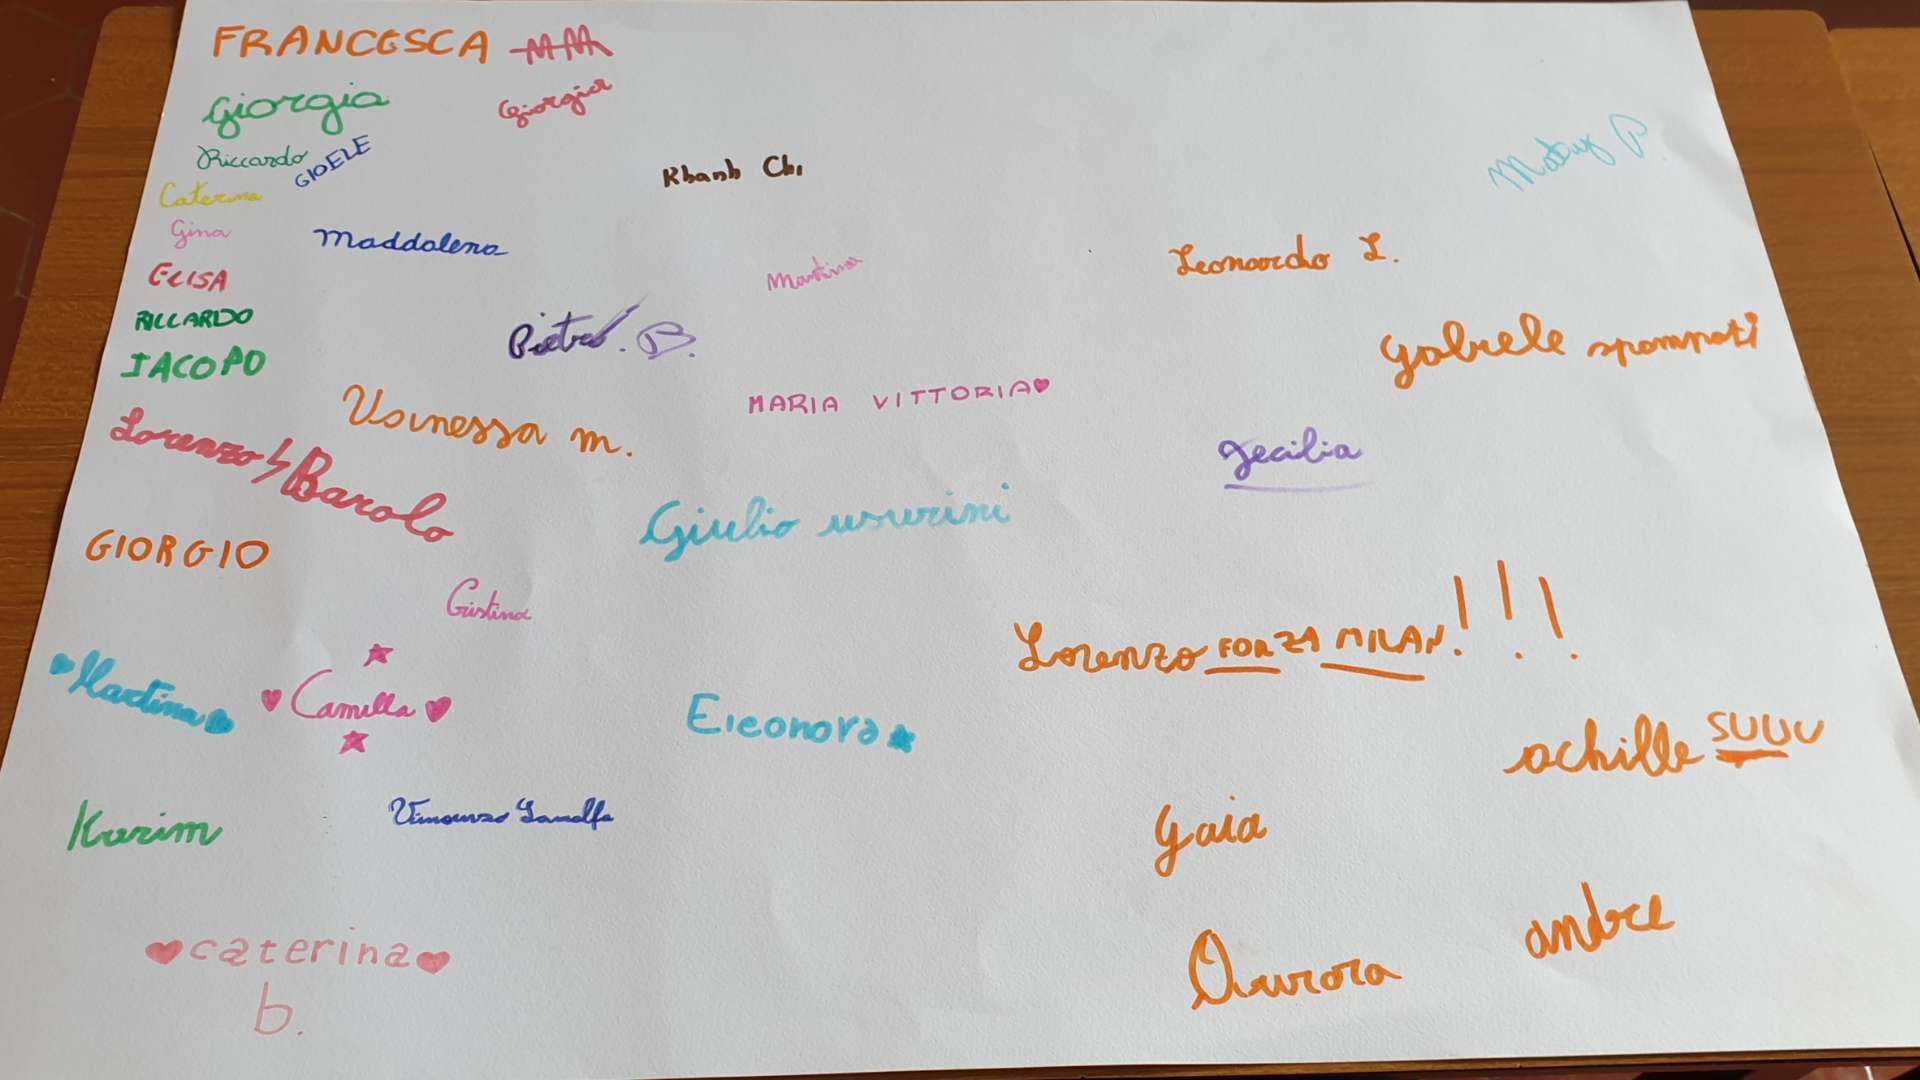 FRANCESCA
Giorgia
Giorgia
Riccardo
GIOELE
Khanh Chi
Caterina
Gina
Maddalena
Leonardo L.
ELISA
Martina
RICCARDO
Pietro. B.
Gabriele spampati
IACOPO
MARIA VITTORIA
m.
Lorenzo
Barolo
Cecilia
Giulio usurini
GIORGIO
Cristina
Lorenzo FORZA MILAN!!!
Martina
Camilla
Eleonora
achille SUUU
Karim
Gaia
Aurora
andre
caterina
b.